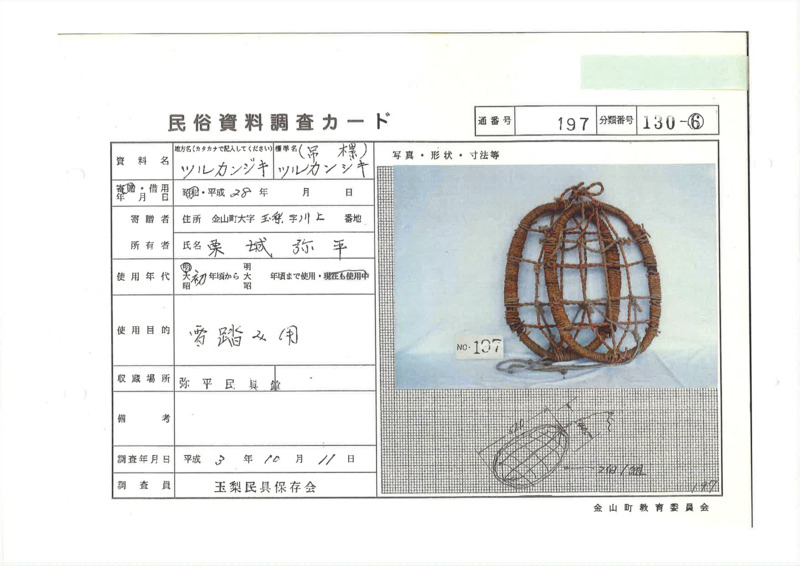 民俗資料調査カード
通番号 197 分類番号 130-⑥
資料名 地方名(カタカナで記入してください) ツルカンジキ 標準名 (吊樏) ツルカンジキ
寄贈・借用年月日 昭和・平成 28 年 月 日
寄贈者 住所 金山町大字 玉梨 字川上 番地
所有者 氏名 栗城 弥平
使用年代 明大昭 初 年頃から 明大昭 年頃まで使用・現在も使用中
使用目的 雪踏み用
収蔵場所 弥平民具館
備考
調査年月日 平成 3 年 10 月 11 日
調査員 玉梨民具保存会
写真・形状・寸法等
NO. 197
2個1組
197
金山町教育委員会